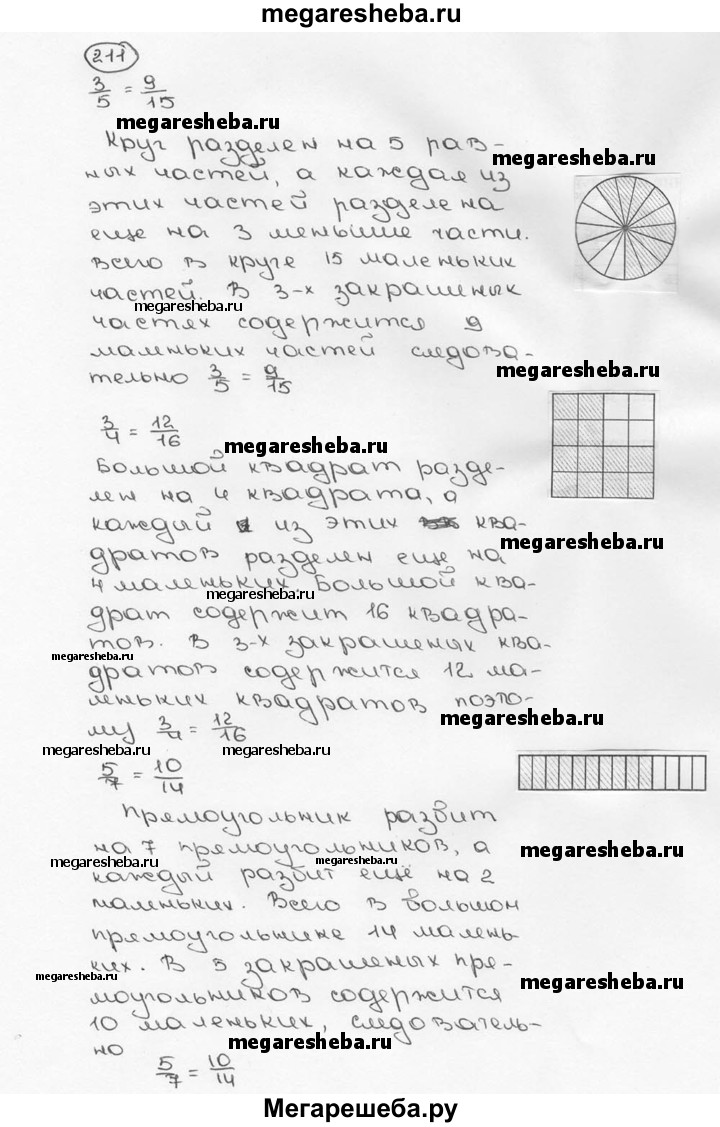 megaresheba.ru
211
3/5 = 9/15
megaresheba.ru
Круг разделен на 5 рав-
megaresheba.ru
ных частей, а каждая из
этих частей разделена
еще на 3 меньшие части.
Всего в круге 15 маленьких
частей. В 3-х закрашеных
megaresheba.ru
частях содержится 9
маленьких частей следова-
megaresheba.ru
тельно 3/5 = 9/15
3/4 = 12/16
megaresheba.ru
Большой квадрат разде-
лен на 4 квадрата, а
каждый из этих ква-
megaresheba.ru
дратов разделен еще на
4 маленьких. Большой ква-
megaresheba.ru
драт содержит 16 квадра-
тов. В 3-х закрашеных ква-
megaresheba.ru
дратов содержится 12 ма-
леньких квадратов поэто-
megaresheba.ru
му 3/4 = 12/16
megaresheba.ru megaresheba.ru
5/7 = 10/14
Прямоугольник разбит
на 7 прямоугольников, а
megaresheba.ru megaresheba.ru megaresheba.ru
каждый разбит ещё на 2
маленьких. Всего в большом
прямоугольнике 14 малень-
ких. В 5 закрашеных пря-
megaresheba.ru megaresheba.ru
моугольников содержится
10 маленьких, следователь-
megaresheba.ru
но
5/7 = 10/14
Мегарешеба.ру